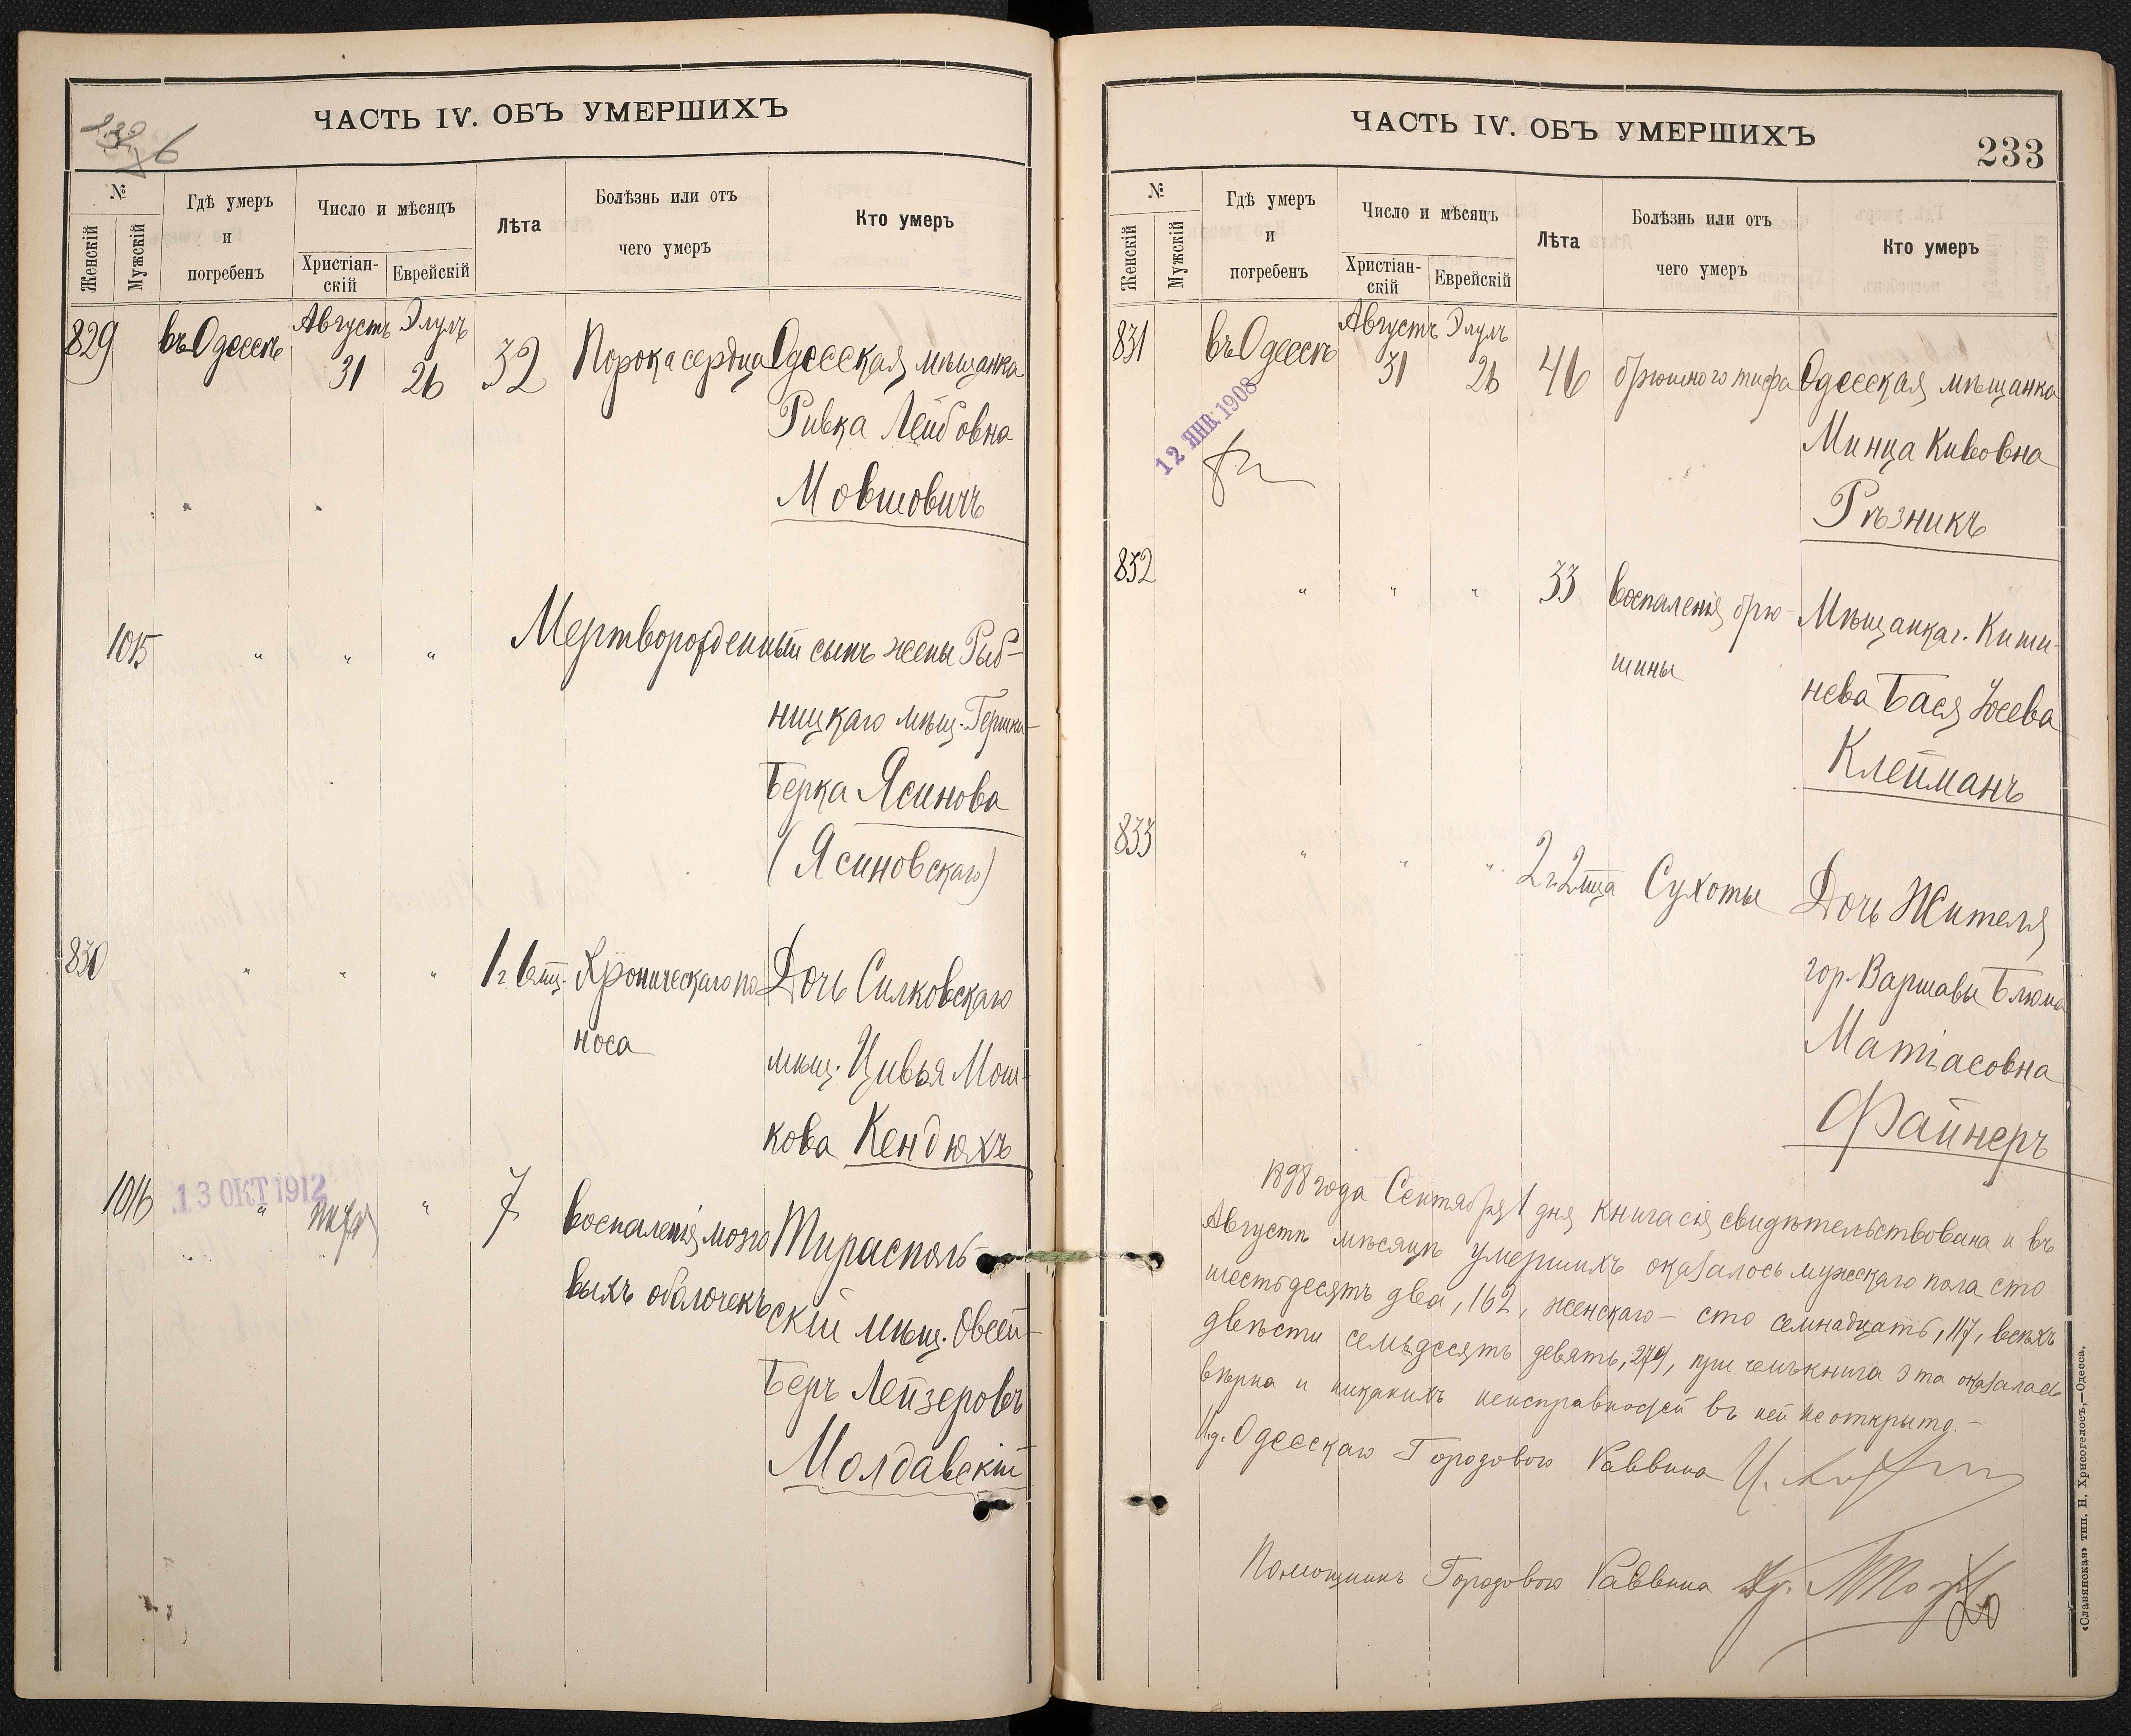 ЧАСТЬ IV. ОБЪ УМЕРШИХЪ
№
Женскій
Мужскій
Гдѣ умеръ
и
погребенъ
Число и мѣсяцъ
Христіан-
скій
Еврейскій
Лѣта
Болѣзнь или отъ
чего умеръ
Кто умеръ
829 въ Одессѣ Августъ 31 Элулъ 26 32 Порока сердца Одесская мѣщанка
Ривка Лейбовна
Мовшовичъ
1015 " " " Мертворожденный сынъ жены Рыб-
ницкаго мѣщ. Гершка-
Берка Ясинова
(Ясиновскаго)
830 " " " 1 г. 6 мц. Хроническаго по- Дочь Силковскаго
носа мѣщ. Цивья Мош-
кова Кендюхъ
13 ОКТ 1912
1016 " " 7 воспаленія мозго Тирасполь-
выхъ оболочекъ скій мѣщ. Овсей-
Беръ Лейзеровъ
Молдавскій
ЧАСТЬ IV. ОБЪ УМЕРШИХЪ
233
№
Женскій
Мужскій
Гдѣ умеръ
и
погребенъ
Число и мѣсяцъ
Христіан-
скій
Еврейскій
Лѣта
Болѣзнь или отъ
чего умеръ
Кто умеръ
831 въ Одессѣ Августъ 31 Элулъ 26 46 брюшного тифа Одесская мѣщанка
12 ЯНВ. 1908
Минца Кивовна
Рѣзникъ
832 " " " 33 воспаленія брю- Мѣщанка г. Киши-
шины нева Бася Іосева
Клейманъ
833 " " " 2 г. 2 мца Сухоты Дочь Жителя
гор. Варшавы Блюма
Матіасовна
Файнеръ
1898 года Сентября 1 дня книга сія свидѣтельствована и въ
Августѣ мѣсяцѣ умершихъ оказалось мужескаго пола сто
шестьдесятъ два, 162, женскаго – сто семнадцать, 117, всѣхъ
двѣсти семьдесятъ девять, 279, при чемъ книга эта оказалась
вѣрна и никакихъ неисправностей въ ней не открыто.–
И.д. Одесскаго Городового Раввина
Помощникъ Городового Раввина
«Славянская» тип. Н. Хрисогелосъ,—Одесса.